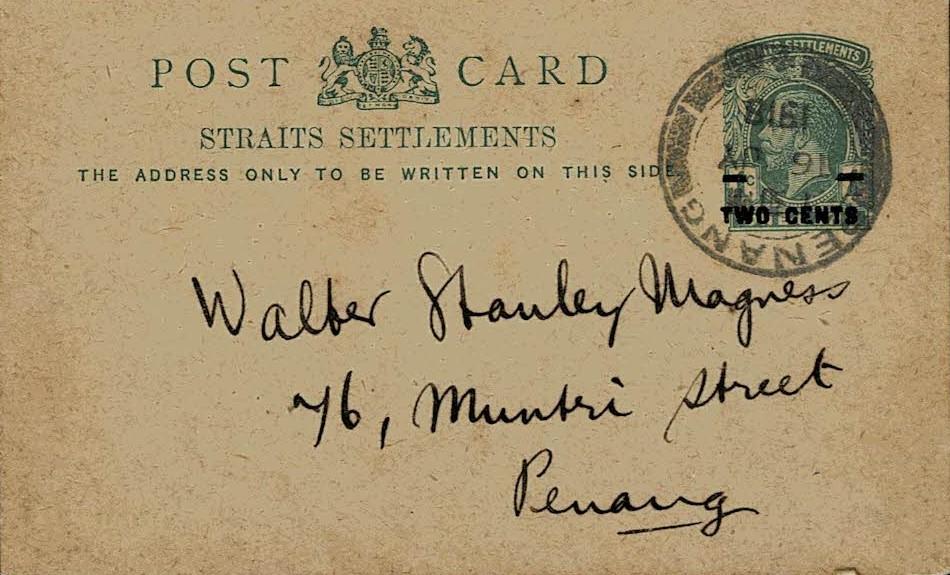 POST CARD
STRAITS SETTLEMENTS
THE ADDRESS ONLY TO BE WRITTEN ON THIS SIDE.
STRAITS SETTLEMENTS
TWO CENTS
PENANG
1918
Walter Stanley Magness
76, Muntri Street
Penang